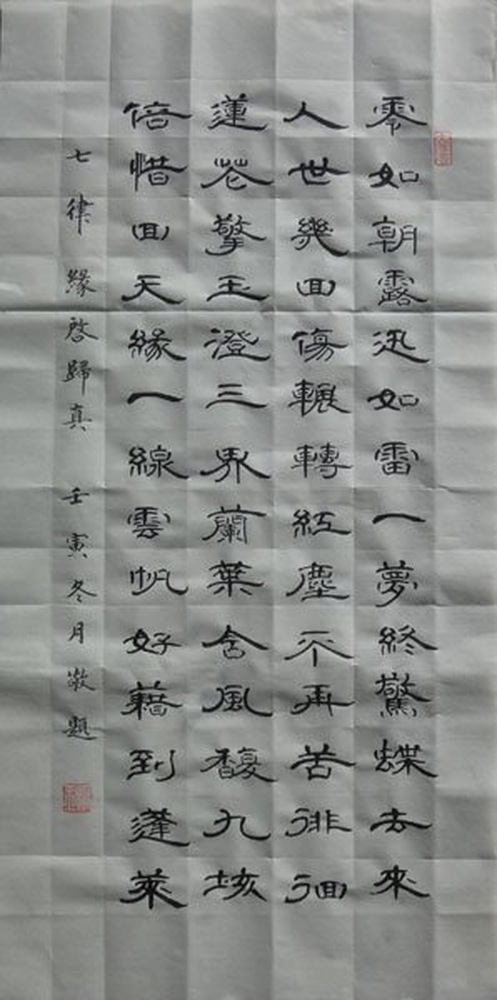 零如朝露迅如雷一夢終驚蝶去來
人世幾回傷輾轉紅塵不再苦徘徊
蓮花擎玉澄三界蘭葉含風馥九垓
倍惜回天緣一線雲帆好藉到蓬萊
七律 緣啓歸真 壬寅冬月敬題